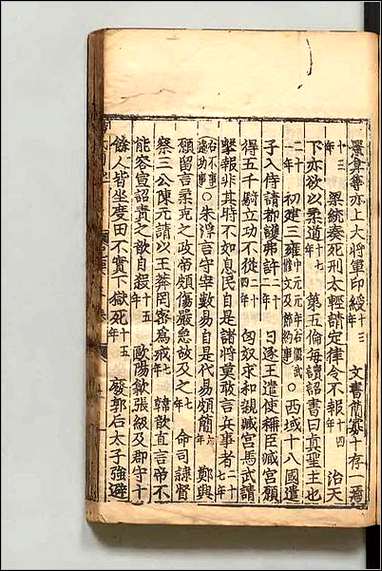 異等亦上大將軍印綬十三年 文書簡寡十存一焉
十三年 梁統奏死刑太輕請定律令不報十四年 治天
下亦欲以柔道十七年 第五倫每讀詔書曰眞聖主也
二十一年 初建三雍中元元年 ○西域十八國遣
子入侍請都護弗許二十一年 日逐王遣使稱臣臧宮願
得五千騎立功不從二十四年 匈奴求和親臧宮馬武請
擊報非其時不如息民自是諸將莫敢言兵事者二十七年
右不事遠功 ○朱浮言守宰數易自是代易頗簡六年 鄭興
願留言柔克之政帝頗傷嚴急故及之七年 命司隷督
察三公陳元請以王莽罔密爲戒七年 韓歆直言帝不
能容宣詔責之歆自殺十五年 歐陽歙張伋及郡守十
餘人皆坐度田不實下獄死十五年 廢郭后太子強避